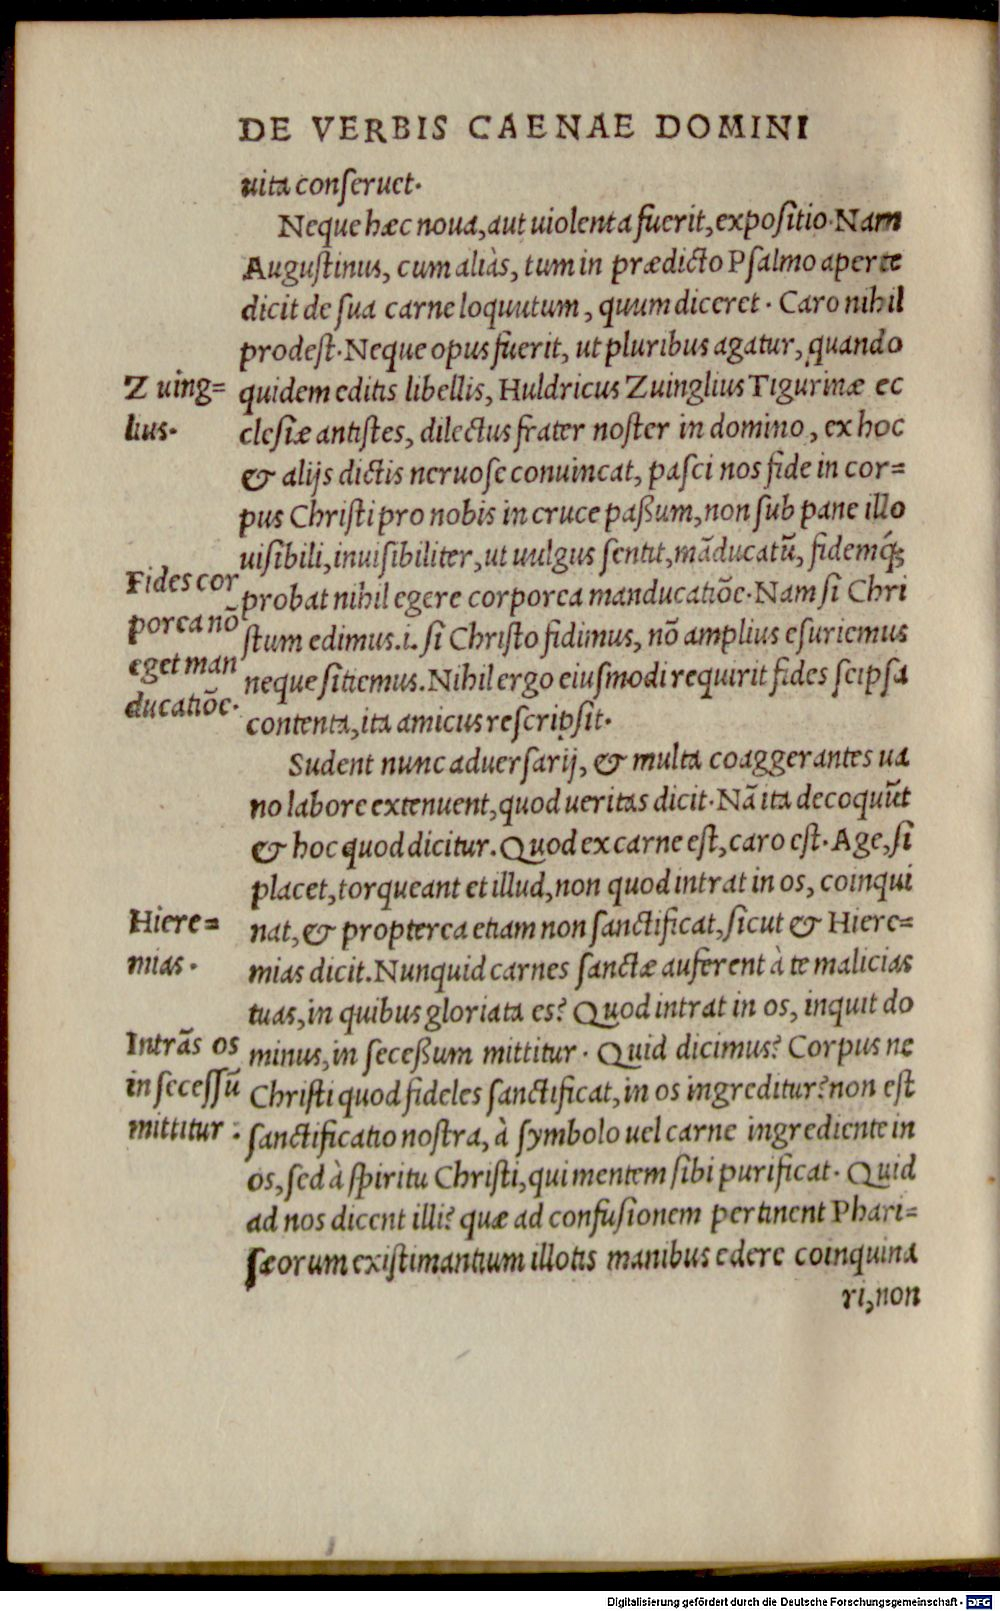 DE VERBIS CAENAE DOMINI
uita conseruet.
Neque hæc noua, aut uiolenta fuerit, expositio. Nam
Augustinus, cum aliàs, tum in prædicto Psalmo aperte
dicit de sua carne loquutum, quum diceret. Caro nihil
prodest. Neque opus fuerit, ut pluribus agatur, quando
Zuing=
quidem editis libellis, Huldricus Zuinglius Tigurinæ ec
lius.
clesiæ antistes, dilectus frater noster in domino, ex hoc
& alijs dictis neruose conuincat, pasci nos fide in cor=
pus Christi pro nobis in cruce paßum, non sub pane illo
uisibili, inuisibiliter, ut uulgus sentit, mãducatũ, fidemq́;
Fides cor
probat nihil egere corporea manducatiõe. Nam si Chri
porea nõ
stum edimus .i. si Christo fidimus, nõ amplius esuriemus
eget man
neque sitiemus. Nihil ergo eiusmodi requirit fides seipsa
ducatiõe.
contenta, ita amicus rescripsit.
Sudent nunc aduersarij, & multa coaggerantes ua
no labore extenuent, quod ueritas dicit. Nã ita decoquũt
& hoc quod dicitur. Quod ex carne est, caro est. Age, si
placet, torqueant et illud, non quod intrat in os, coinqui
Hiere=
nat, & propterea etiam non sanctificat, sicut & Hiere=
mias.
mias dicit. Nunquid carnes sanctæ auferent à te malicias
tuas, in quibus gloriata es? Quod intrat in os, inquit do
Intrãs os
minus, in seceßum mittitur. Quid dicimus? Corpus ne
in secessũ
Christi quod fideles sanctificat, in os ingreditur? non est
mittitur.
sanctificatio nostra, à symbolo uel carne ingrediente in
os, sed à spiritu Christi, qui mentem sibi purificat. Quid
ad nos dicent illi? quæ ad confusionem pertinent Phari=
sæorum existimantium illotis manibus edere coinquina
ri, non
Digitalisierung gefördert durch die Deutsche Forschungsgemeinschaft - DFG